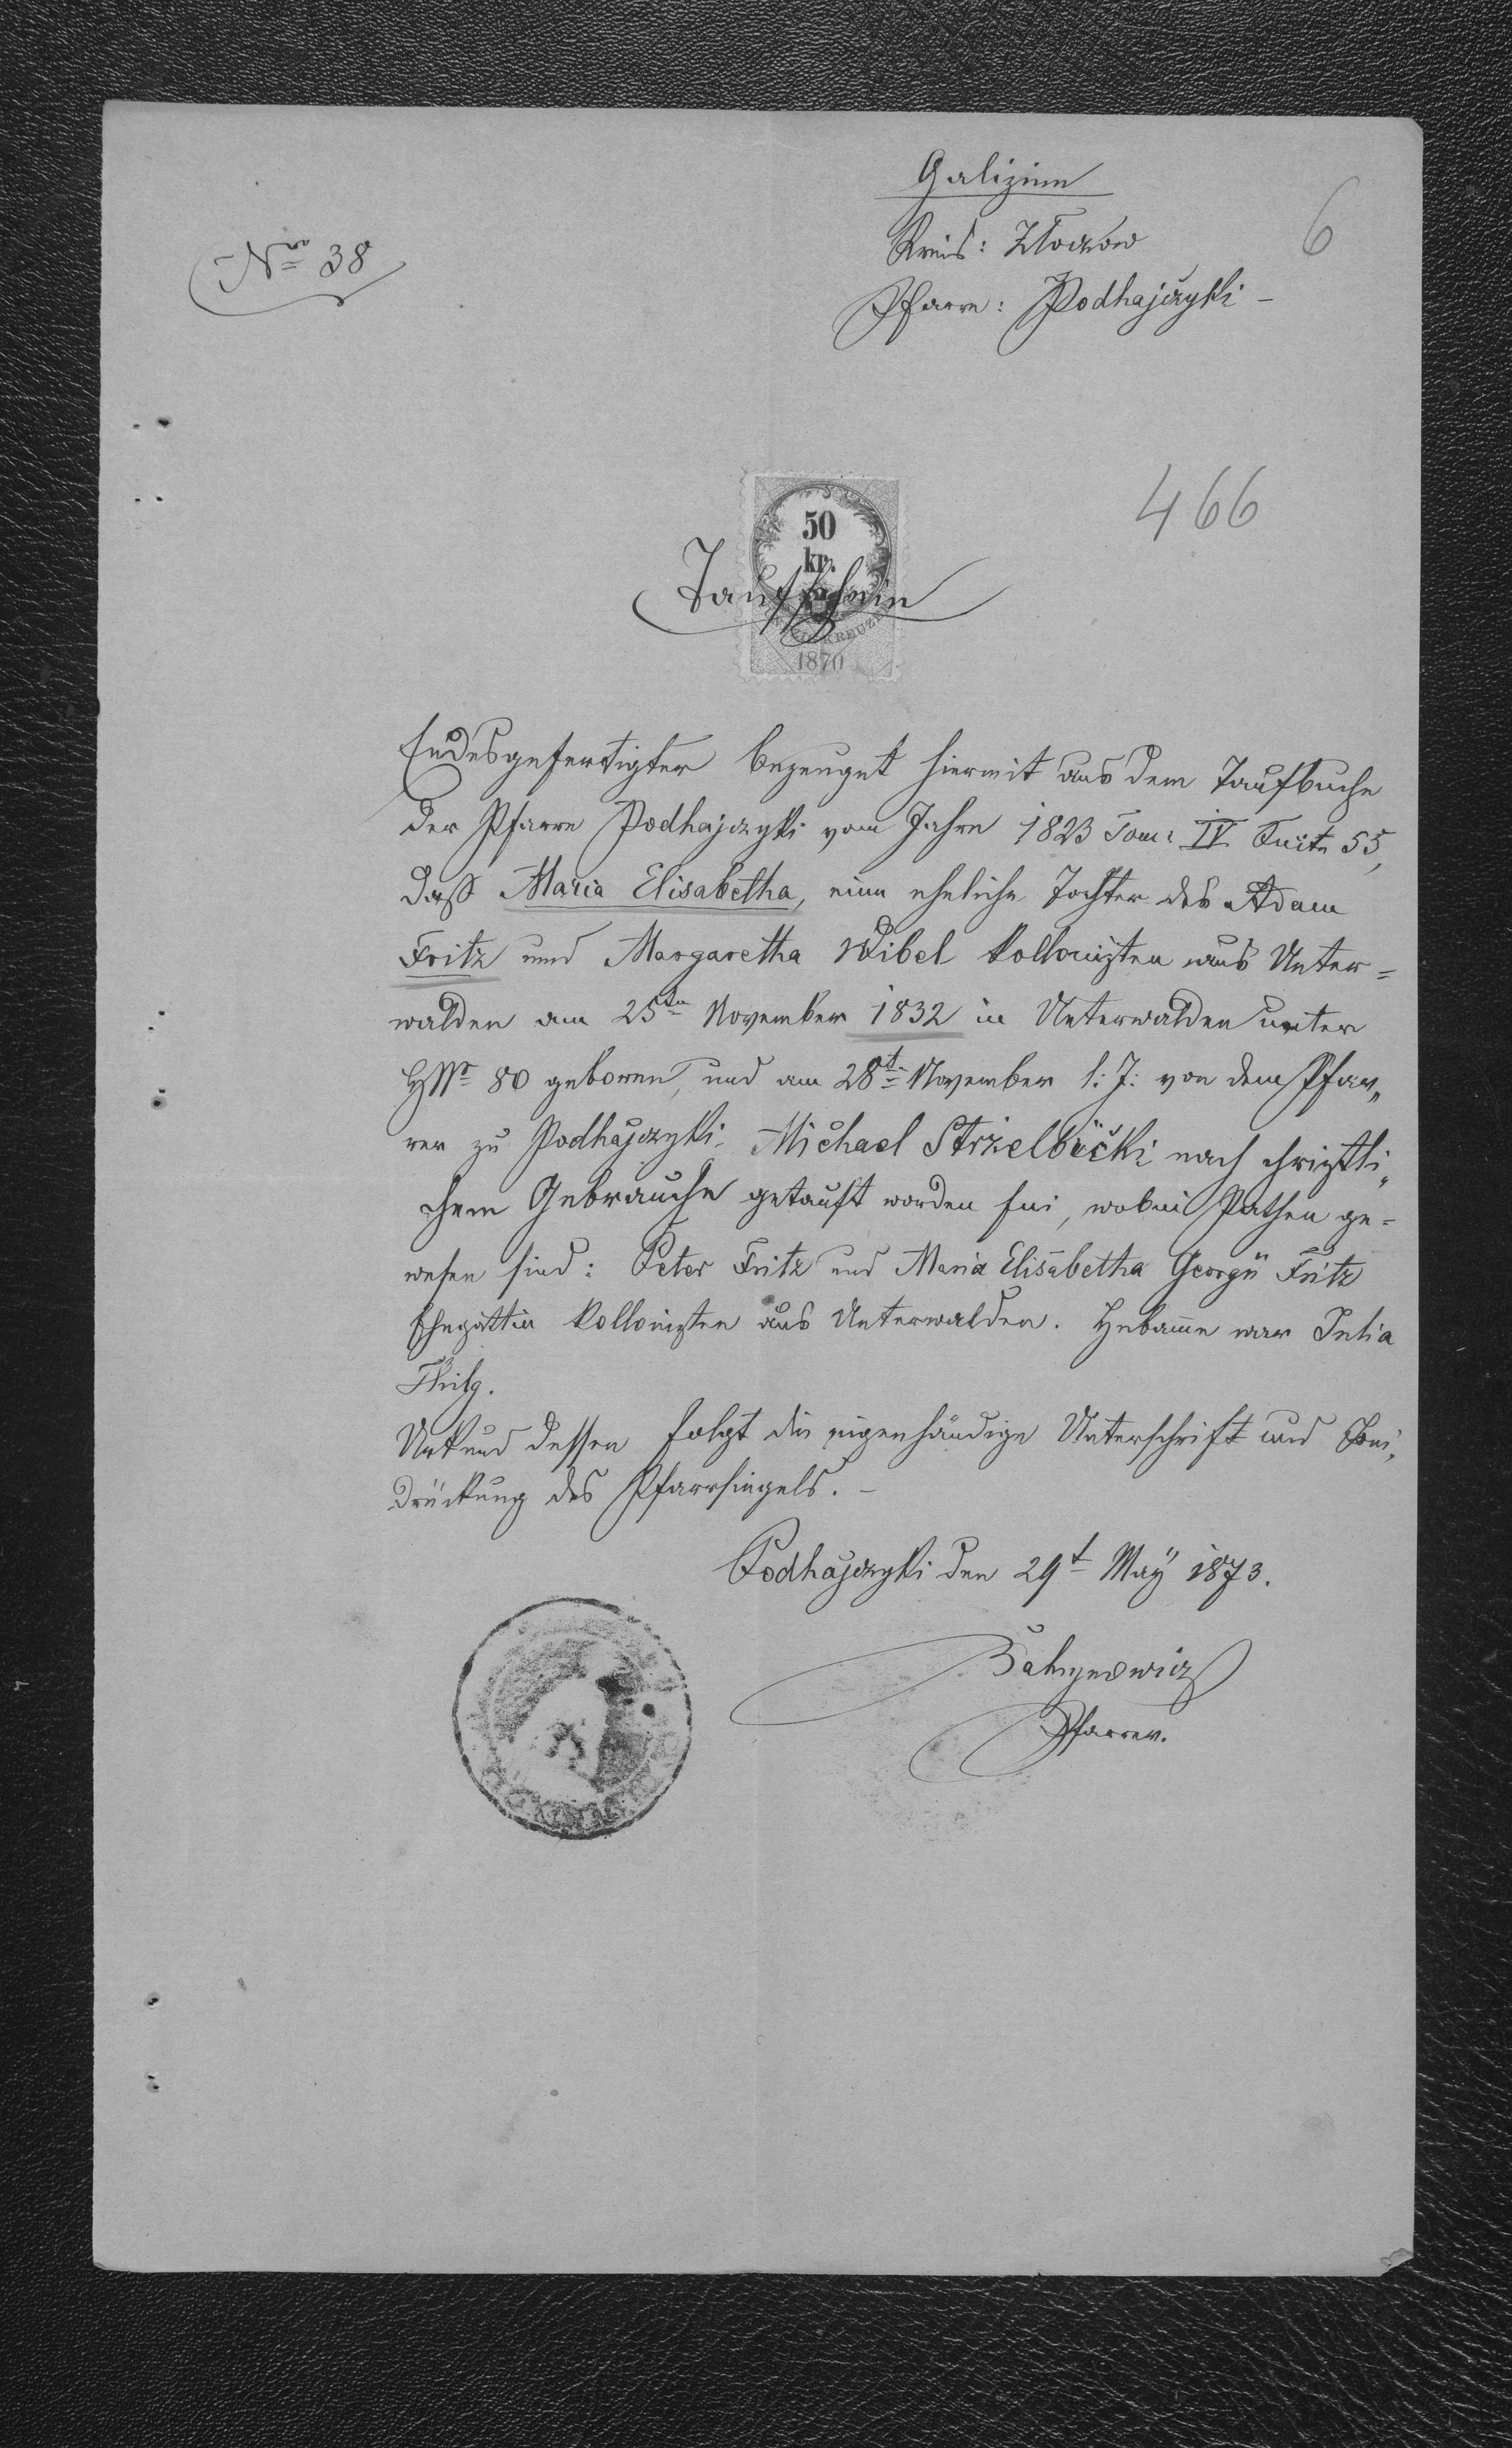 Galizien
Nro 38
Kreis: Złoczow
6
Pfarre: Podhajczyki –
466
50
kr.
Taufschein
1870
Endesgefertigter bezeuget hiermit aus dem Taufbuche
der Pfarre Podhajczyki vom Jahre 1823 Tom: IV Seite 55,
daß Maria Elisabetha, eine eheliche Tochter des Adam
Fritz und Margaretha Wibel Kollonisten aus Unter=
walden am 25ten November 1832 in Unterwalden unter
HNr 80 geboren, und am 28t November l: J: von dem Pfar„
rer zu Podhajczyki Michael Strzelbicki nach christli„
chem Gebrauche getauft worden sei, wobei Pathen ge=
wesen sind: Peter Fritz und Maria Elisabetha Georgii Fritz
Ehegattin Kollonisten aus Unterwalden. Hebame war Julia
Urkund dessen folgt die eigenhändige Unterschrift und Bei„
drückung des Pfarrsiegels. –
Podhajczyki den 29t Maÿ 1873.
Pfarrer.